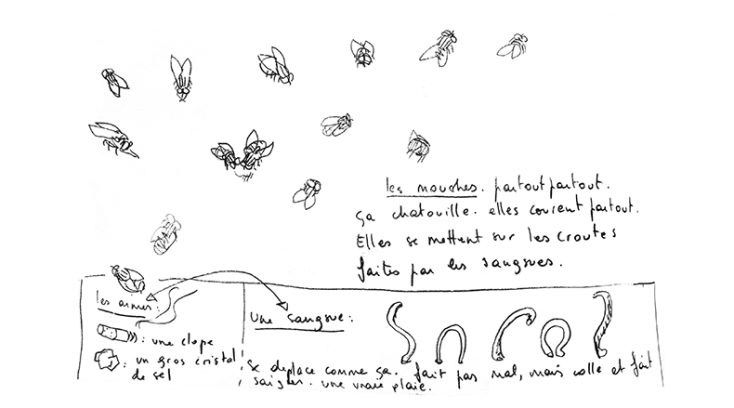 les mouches. partout partout.
ça chatouille. elles courent partout.
Elles se mettent sur les croutes
faites par les sangsues.
les armes:
: une clope
: un gros cristal
de sel
une sangsue:
se déplace comme ça. fait pas mal, mais colle et fait
saigner. une vraie plaie.